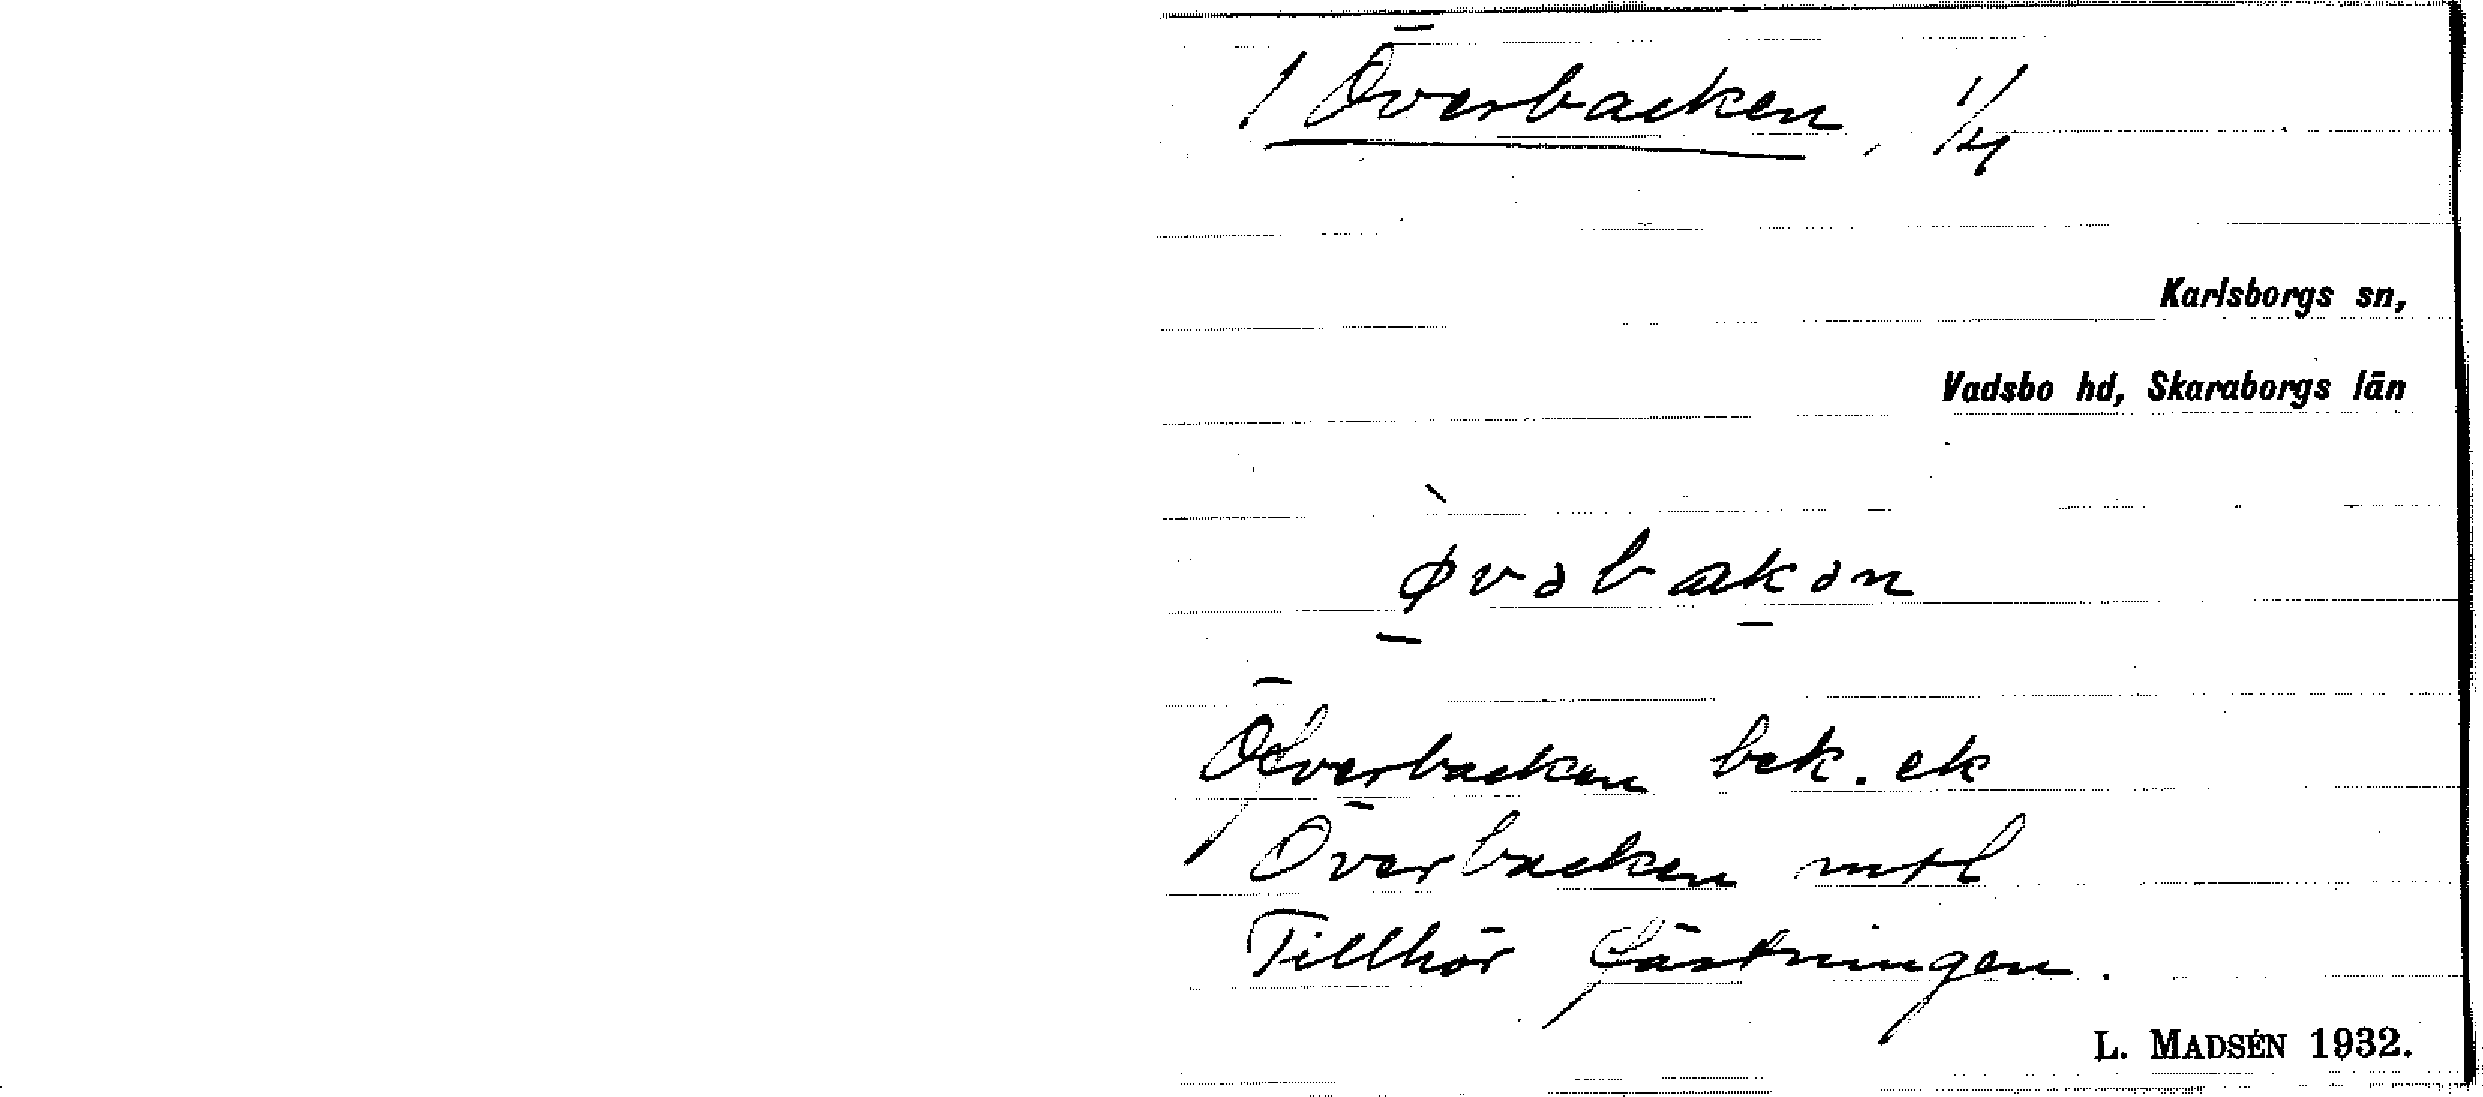 1 Överbacken, 1/4
Karlsborgs sn,
Vadsbo hd, Skaraborgs län
ø̀vəbakən
Öfverbacken bek. ek
Överbacken mtl
Tillhör fästningen.
L. MADSÉN 1932.